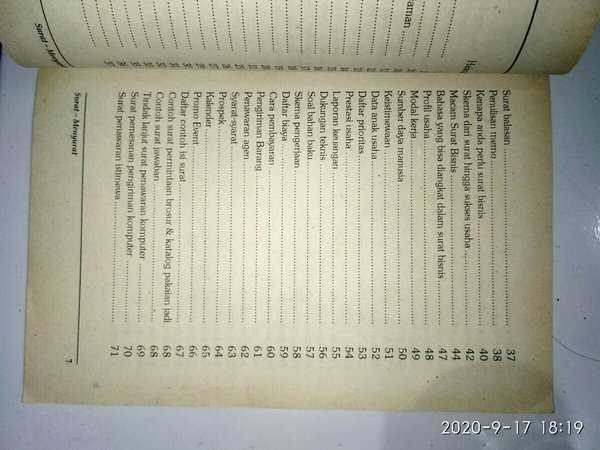 Surat balasan ........ 37
Penulisan memo ........ 38
Kenapa anda perlu surat bisnis ........ 40
Skema dari surat hingga sukses usaha ........ 42
Macam Surat Bisnis ........ 44
Bahasa yang bisa diangkat dalam surat bisnis ........ 47
Profil usaha ........ 48
Modal kerja ........ 49
Sumber daya manusia ........ 50
Keistimewaan ........ 51
Data anak usaha ........ 52
Daftar prioritas ........ 53
Prestasi usaha ........ 54
Laporan keuangan ........ 55
Dukungan teknis ........ 56
Soal bahan baku ........ 57
Skema pengerjaan ........ 58
Daftar biaya ........ 59
Cara pembayaran ........ 60
Pengiriman Barang ........ 61
Penawaran agen ........ 62
Syarat-syarat ........ 63
Prospek ........ 64
Kalender ........ 65
Promo Event ........ 66
Daftar contoh isi surat ........ 67
Contoh surat permintaan brosur & katalog pakaian jadi 68
Contoh surat jawaban ........ 68
Tindak lanjut surat penawaran komputer ........ 69
Surat pemesanan pengiriman komputer ........ 70
Surat penawaran istimewa ........ 71
Surat - Menyurat 7
2020-9-17 18:19